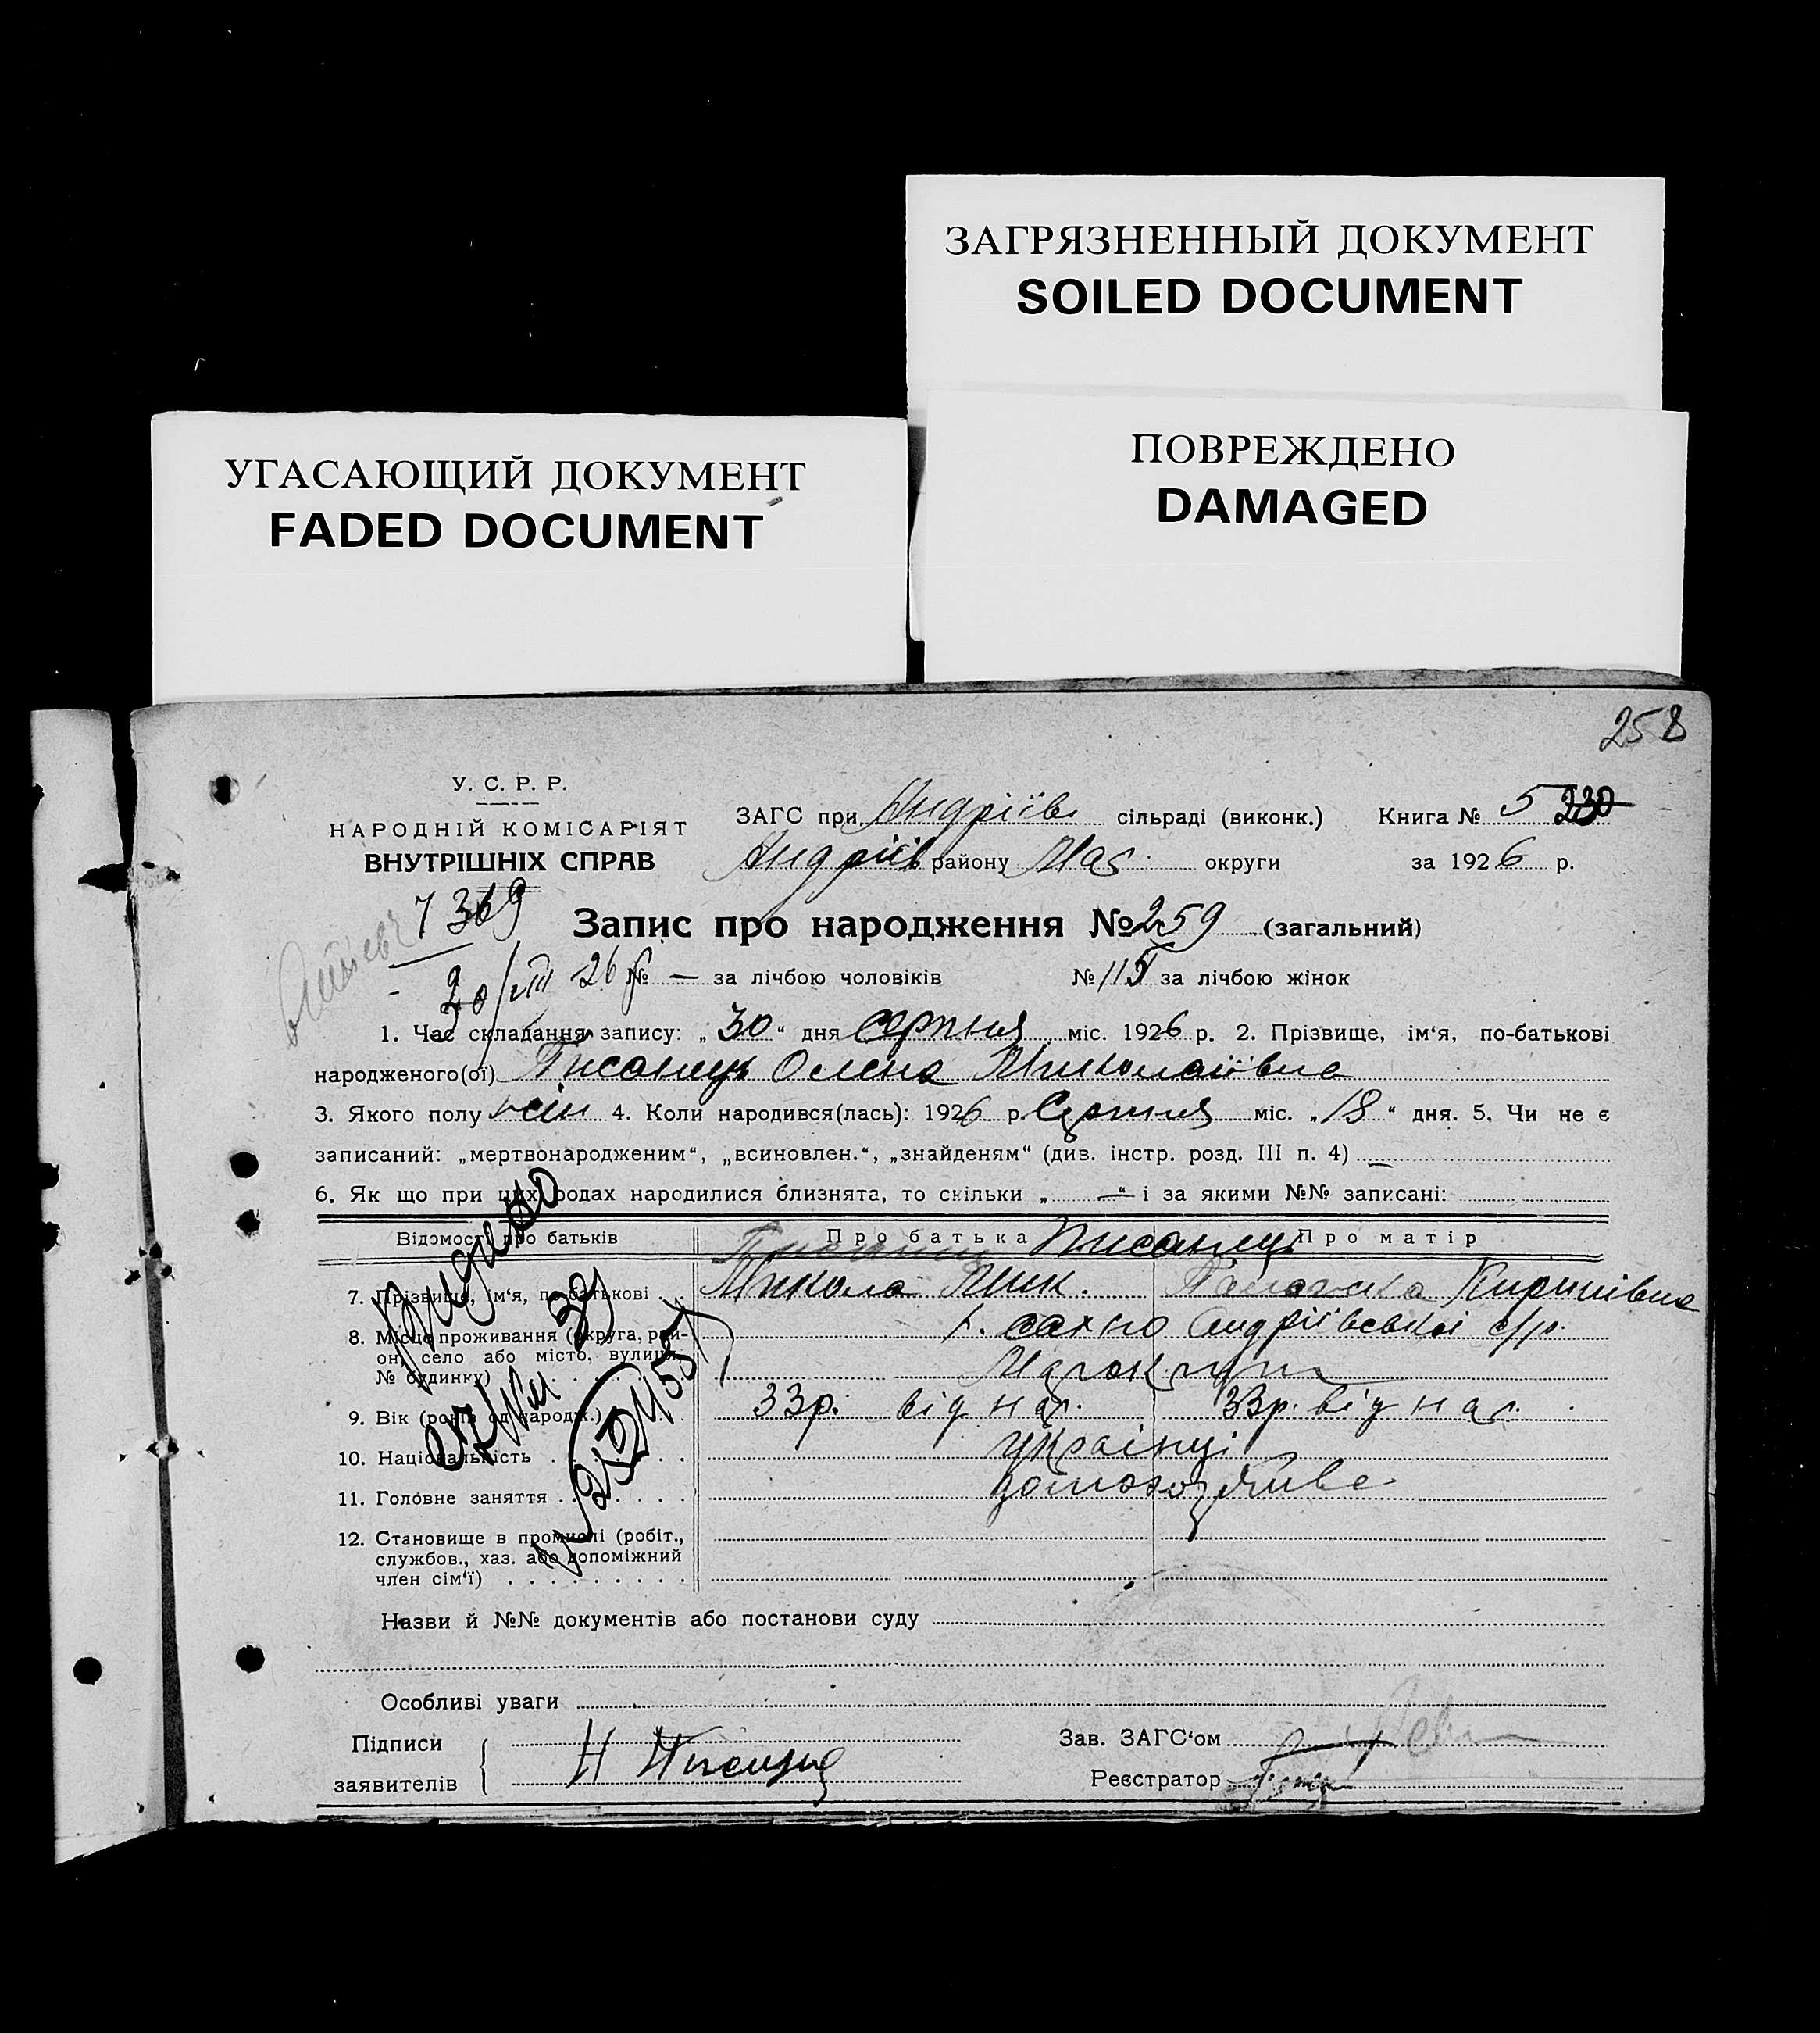 ЗАГРЯЗНЕННЫЙ ДОКУМЕНТ
SOILED DOCUMENT
УГАСАЮЩИЙ ДОКУМЕНТ
FADED DOCUMENT
ПОВРЕЖДЕНО
DAMAGED
258
У. С. Р. Р.
НАРОДНІЙ КОМІСАРІЯТ
ВНУТРІШНІХ СПРАВ
ЗАГС при Андріїв сільраді (виконк.) Книга № 5 230
Андріїв району округи за 1926 р.
7369
Запис про народження № 259 (загальний)
30/VIII 26 р № — за лічбою чоловіків № 115 за лічбою жінок
1. Час складання запису: „30“ дня Серпня міс. 1926 р. 2. Прізвище, ім‘я, по-батькові
народженого(ої) Писанець Олена Миколаївна
3. Якого полу жін 4. Коли народився(лась): 1926 р. Серпня міс. „18“ дня. 5. Чи не є
записаний: „мертвонародженим“, „всиновлен.“, „знайденям“ (див. інстр. розд. III п. 4) —
6. Як що при цих родах народилися близнята, то скільки „ — “ і за якими №№ записані:
Відомості про батьків Про батька Писанець Про матір
7. Прізвище, ім‘я, по батькові . . Микола Мик. Кирилівна
8. Місце проживання (округа, рай- х. сахно Андріївської с/р.
он, село або місто, вулиця,
№ будинку)
9. Вік (років од народж.) 33р. від нар. 33р. від нар.
10. Національність українці
11. Головне заняття
12. Становище в промислі (робіт.,
службов., хаз. або допоміжний
член сім‘ї)
Видано
Назви й №№ документів або постанови суду
Особливі уваги
Підписи
заявителів
Н Писанец
Зав. ЗАГС‘ом
Реєстратор